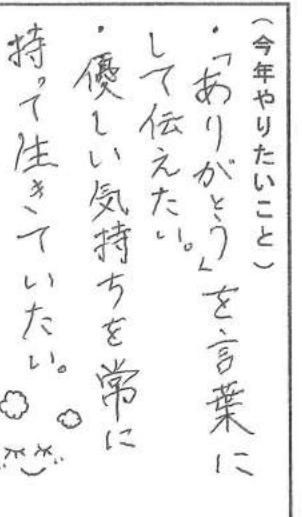 （今年やりたいこと）
・「ありがとう」を言葉に
して伝えたい。
・優しい気持ちを常に
持って生きていたい。